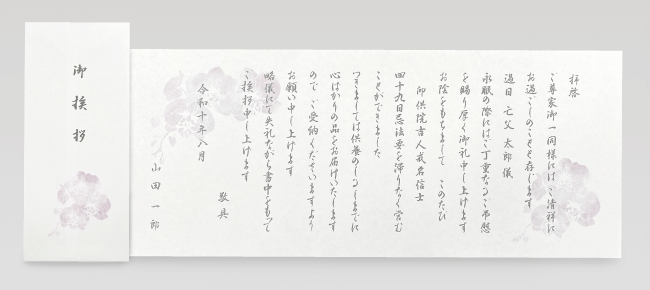 御挨拶
拝啓
ご尊家御一同様には ご清祥に
お過ごしのことと存じます
過日 亡父 太郎 儀
永眠の際にはご丁重なるご弔慰
を賜り厚く御礼申し上げます
お陰をもちまして このたび
御供院書人戒名信士
四十九日忌法要を滞りなく営む
ことができました
つきましては供養のしるしまでに
心ばかりの品をお届けいたします
ので ご受納くださいますよう
お願い申し上げます
略儀にて失礼ながら書中をもって
ご挨拶申し上げます
敬具
令和十年八月
山田一郎